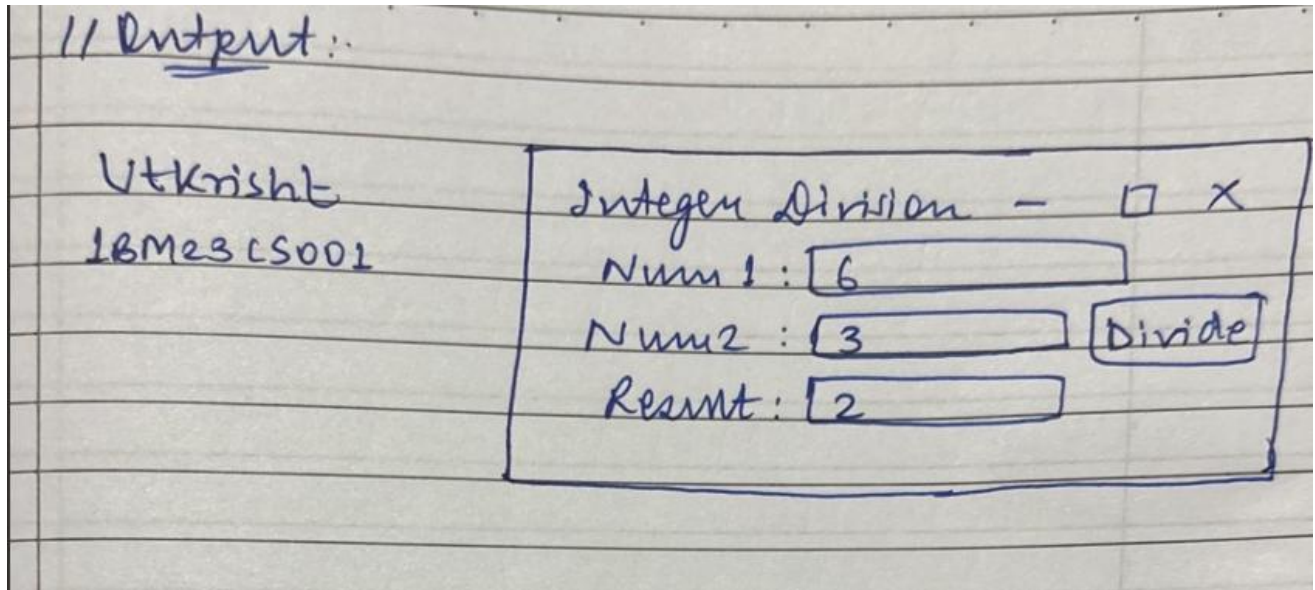 // Output:
Utkrisht
1BM23CS001
Integer Division - □ X
Num 1: 6
Num2 : 3 Divide
Result: 2